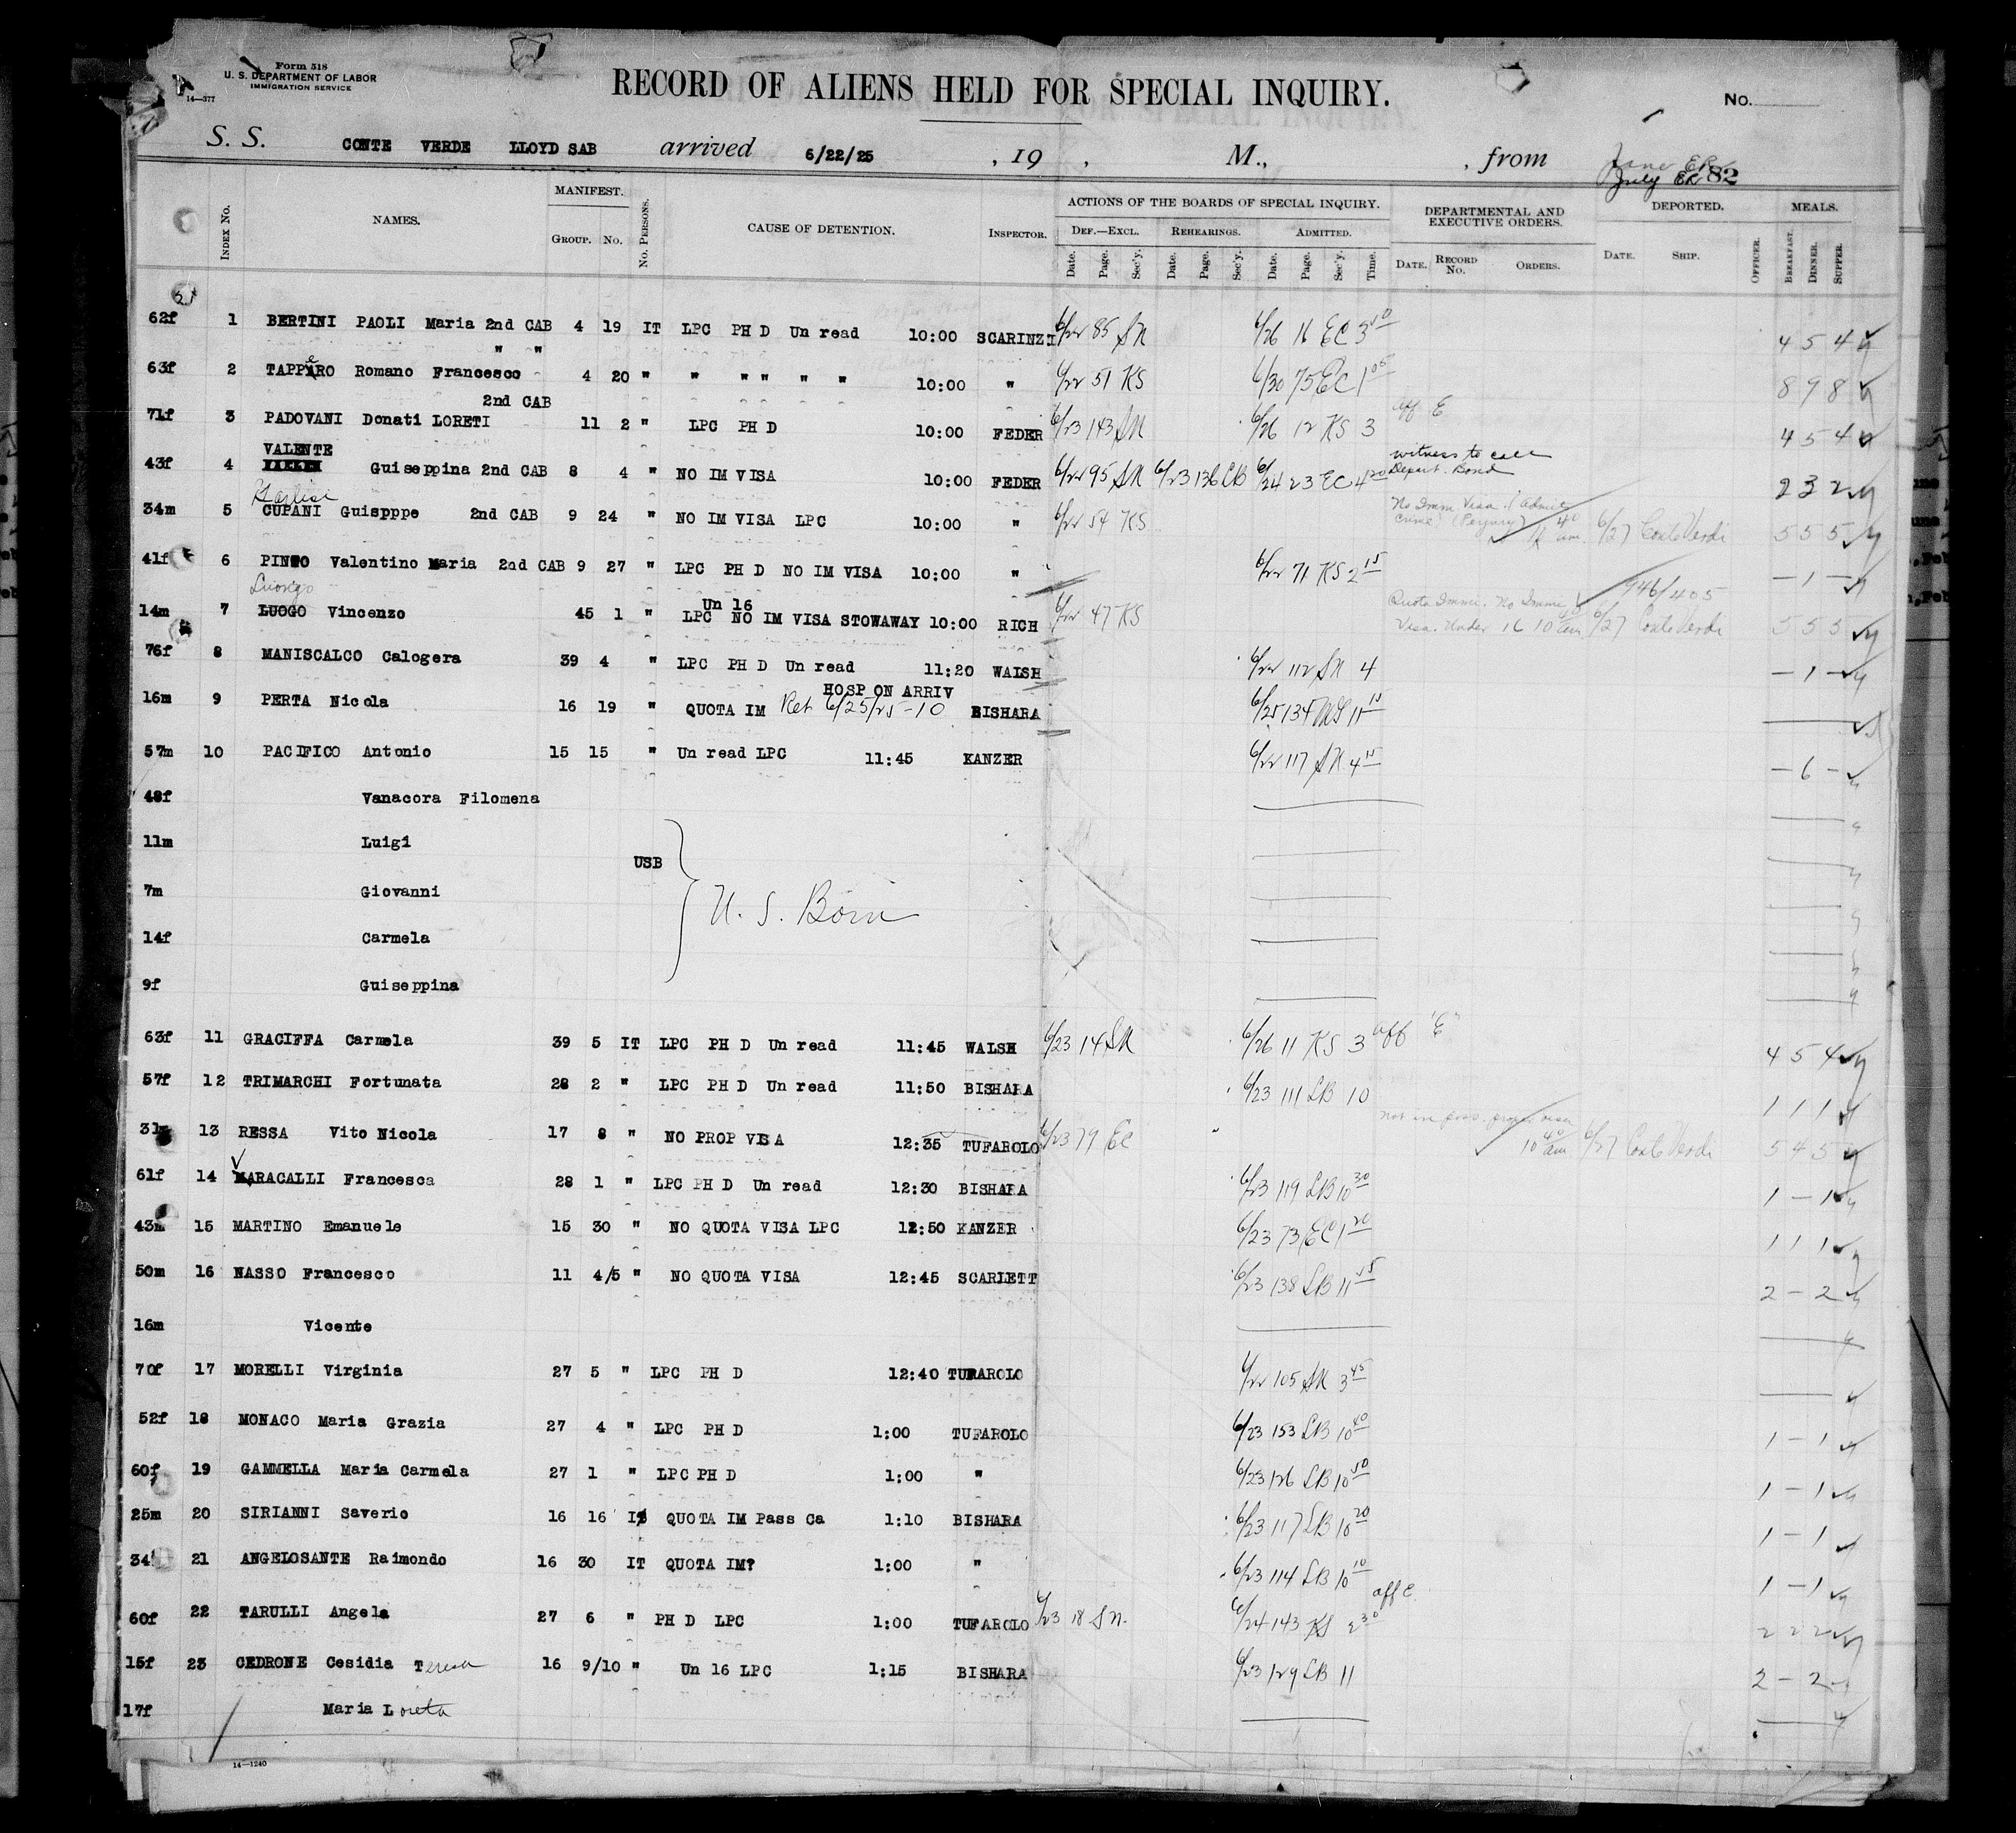 Form 518
U. S. DEPARTMENT OF LABOR
IMMIGRATION SERVICE
14—377
RECORD OF ALIENS HELD FOR SPECIAL INQUIRY.
No.
S. S. CONTE VERDE LLOYD SAB arrived 6/22/25 , 19 , M., , from
June ER
July ER 82
INDEX No. NAMES. MANIFEST. GROUP. No. No. PERSONS. CAUSE OF DETENTION. INSPECTOR. ACTIONS OF THE BOARDS OF SPECIAL INQUIRY. DEPARTMENTAL AND EXECUTIVE ORDERS. DEPORTED. MEALS.
DEF.—EXCL. REHEARINGS. ADMITTED.
Date. Page. Sec'y. Date. Page. Sec'y. Date. Page. Sec'y. Time. DATE. RECORD No. ORDERS. DATE. SHIP. OFFICER. BREAKFAST. DINNER. SUPPER.
62f 1 BERTINI PAOLI Maria 2nd CAB 4 19 IT LPC PH D Un read 10:00 SCARINZI 6/22 85 SN 6/26 16 EC 3 10 4 5 4
" "
63f 2 TAPPERO Romano Francesco 4 20 " " " " " " 10:00 " 6/22 51 KS 6/30 75 EC 1 05 8 9 8
2nd CAB
71f 3 PADOVANI Donati LORETI 11 2 " LPC PH D 10:00 FEDER 6/23 143 SN 6/26 12 KS 3 aff E 4 5 4
VALENTE
43f 4 Guiseppina 2nd CAB 8 4 " NO IM VISA 10:00 FEDER 6/22 95 SN 6/23 136 CB 6/24 23 EC 4 20 witness to call Depart. Bond 2 3 2
34m 5 CUPANI Guispppe 2nd CAB 9 24 " NO IM VISA LPC 10:00 " 6/22 54 KS No Imm Visa (Admit crime) (Perjury) 40 am. 6/27 Conte Verdi 5 5 5
41f 6 PINTO Valentino Maria 2nd CAB 9 27 " LPC PH D NO IM VISA 10:00 " 6/22 71 KS 2 15 — 1 —
Luongo
946/405
14m 7 LUOGO Vincenzo 45 1 " LPC Un 16 NO IM VISA STOWAWAY 10:00 RICH 6/22 47 KS Quota Immi. No Immi Visa. Under 16 10 am 6/27 Conte Verdi 5 5 5
76f 8 MANISCALCO Calogera 39 4 " LPC PH D Un read 11:20 WALSH 6/22 112 SN 4 — 1 —
HOSP ON ARRIV
16m 9 PERTA Nicola 16 19 " QUOTA IM Ret 6/25/25-10 BISHARA 6/25 134 MS 11 15
57m 10 PACIFICO Antonio 15 15 " Un read LPC 11:45 KANZER 6/22 117 SN 4 15 — 6 —
48f Vanacora Filomena
11m Luigi
USB
7m Giovanni
U. S. Born
14f Carmela
9f Guiseppina
63f 11 GRACIFFA Carmela 39 5 IT LPC PH D Un read 11:45 WALSH 6/23 14 SN 6/26 11 KS 3 aff "E" 4 5 4
57f 12 TRIMARCHI Fortunata 28 2 " LPC PH D Un read 11:50 BISHARA 6/23 111 LB 10 1 1 1
31m 13 RESSA Vito Nicola 17 8 " NO PROP VISA 12:35 TUFAROLO 6/23 79 EC not in poss. proper visa 10 40 am. 6/27 Conte Verdi 5 4 5
61f 14 VARACALLI Francesca 28 1 " LPC PH D Un read 12:30 BISHARA 6/23 119 LB 10 30 1 — 1
43m 15 MARTINO Emanuele 15 30 " NO QUOTA VISA LPC 12:50 KANZER 6/23 73 EC 1 20 1 1 1
50m 16 NASSO Francesco 11 4/5 " NO QUOTA VISA 12:45 SCARLETT 6/23 138 LB 11 15 2 — 2
16m Vicente
70f 17 MORELLI Virginia 27 5 " LPC PH D 12:40 TUFAROLO 6/22 105 SN 3 45
52f 18 MONACO Maria Grazia 27 4 " LPC PH D 1:00 TUFAROLO 6/23 153 LB 10 40 1 — 1
60f 19 GAMMELLA Maria Carmela 27 1 " LPC PH D 1:00 " 6/23 126 LB 10 50 1 — 1
25m 20 SIRIANNI Saverio 16 16 IT QUOTA IM Pass Ca 1:10 BISHARA 6/23 117 LB 10 20 1 — 1
34 21 ANGELOSANTE Raimondo 16 30 IT QUOTA IM? 1:00 " 6/23 114 LB 10 10 1 — 1
60f 22 TARULLI Angela 27 6 " PH D LPC 1:00 TUFAROLO 6/23 18 SN. 6/24 143 KS 2 30 aff E 2 2 2
15f 23 CEDRONE Cesidia Teresa 16 9/10 " Un 16 LPC 1:15 BISHARA 6/23 129 LB 11 2 — 2
17f Maria Loreta
14—1240